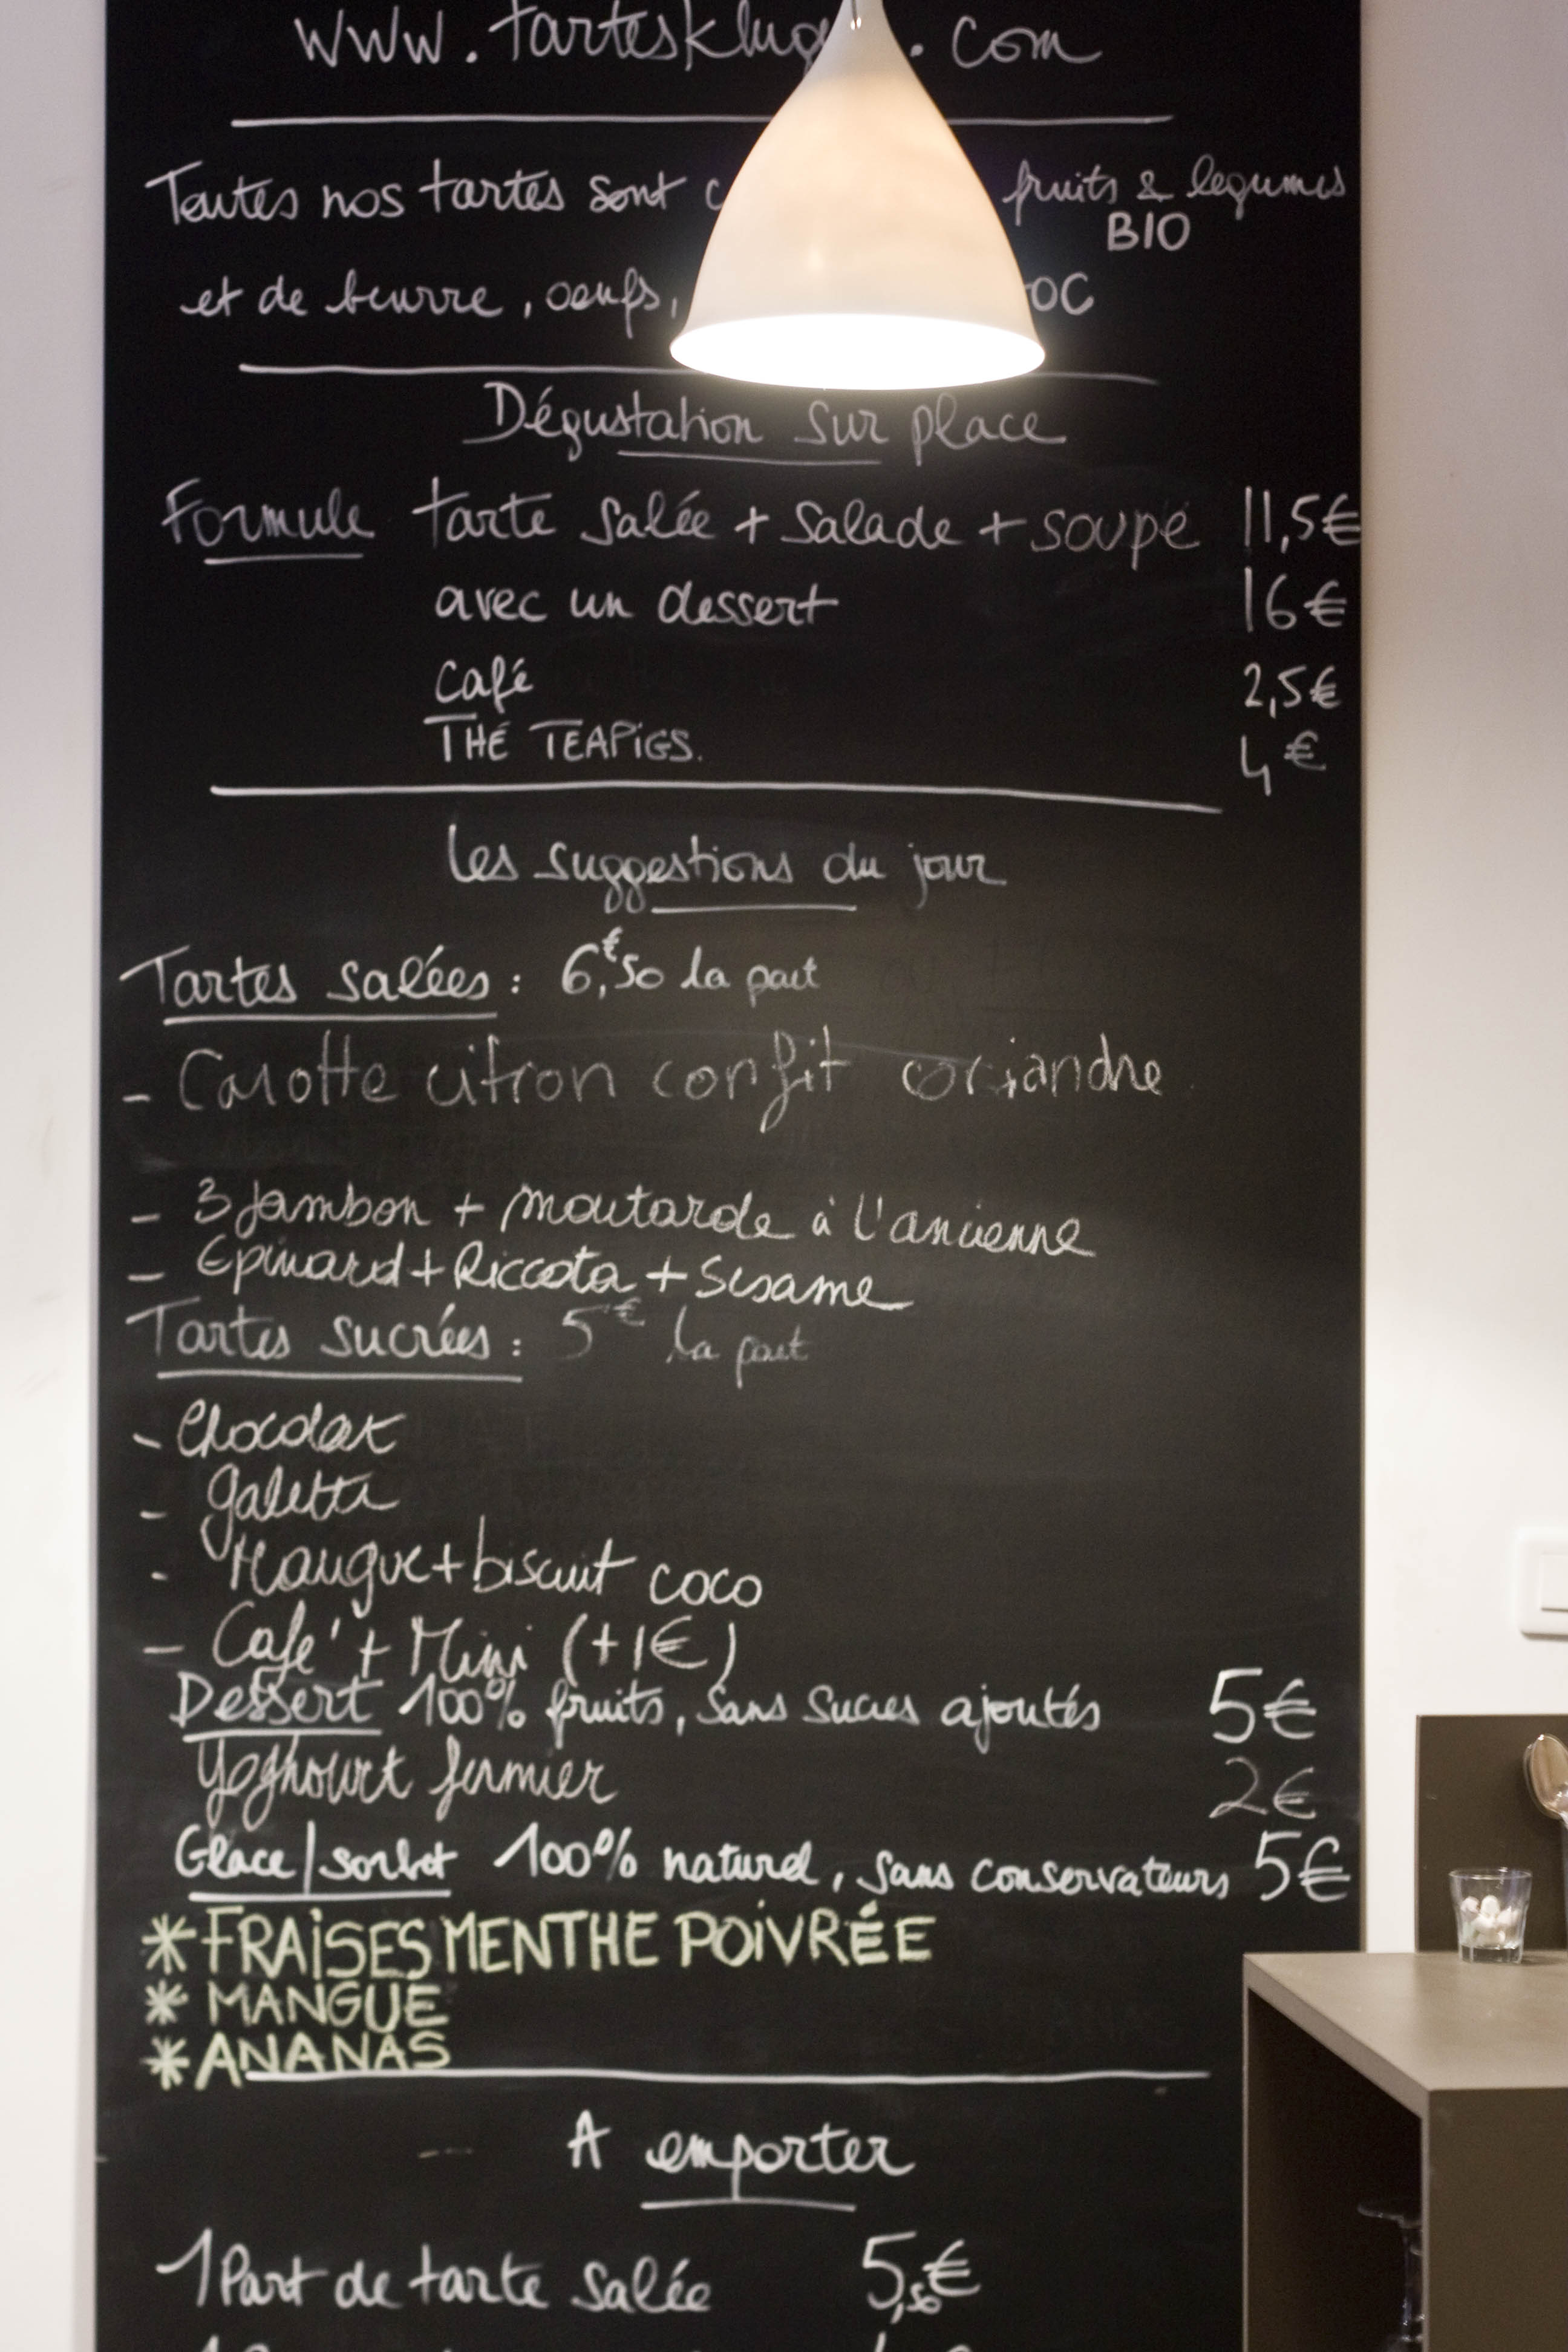 www.tartesklug .com
Toutes nos tartes sont c fruits & legumes
BIO
et de beurre, oeufs, OC
Dégustation sur place
Formule tarte salée + salade + soupe 11,5€
avec un dessert 16€
Café 2,5€
THÉ TEAPiGS. 4€
Les suggestions du jour
Tartes salées : 6,€50 la part
- Carotte citron confit coriandre
- 3 Jambon + Moutarde à l'ancienne
- Epinard + Riccota + Sesame
Tartes sucrées : 5€ la part
- Chocolat
- galette
- Mangue + biscuit coco
- Café + Mini (+1€)
Dessert 100% fruits, sans sucres ajoutés 5€
Yoghourt fermier 2€
Glace/sorbet 100% naturel, sans conservateurs 5€
* FRAiSES MENTHE POiVRÉE
* MANGUE
* ANANAS
A emporter
1 Part de tarte salée 5,50€